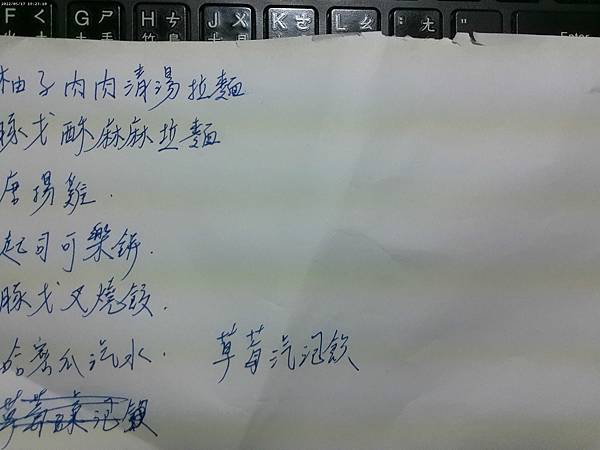 2022/05/17 19:23:10
F ㄑ G ㄕ H ㄘ J ㄨ K ㄜ L ㄠ ; ㄤ " Enter
柚子肉肉清湯拉麵
豚戈酥麻麻拉麵
唐揚雞.
起司可樂餅.
豚戈叉燒餃.
哈密瓜汽水. 草莓汽泡飲